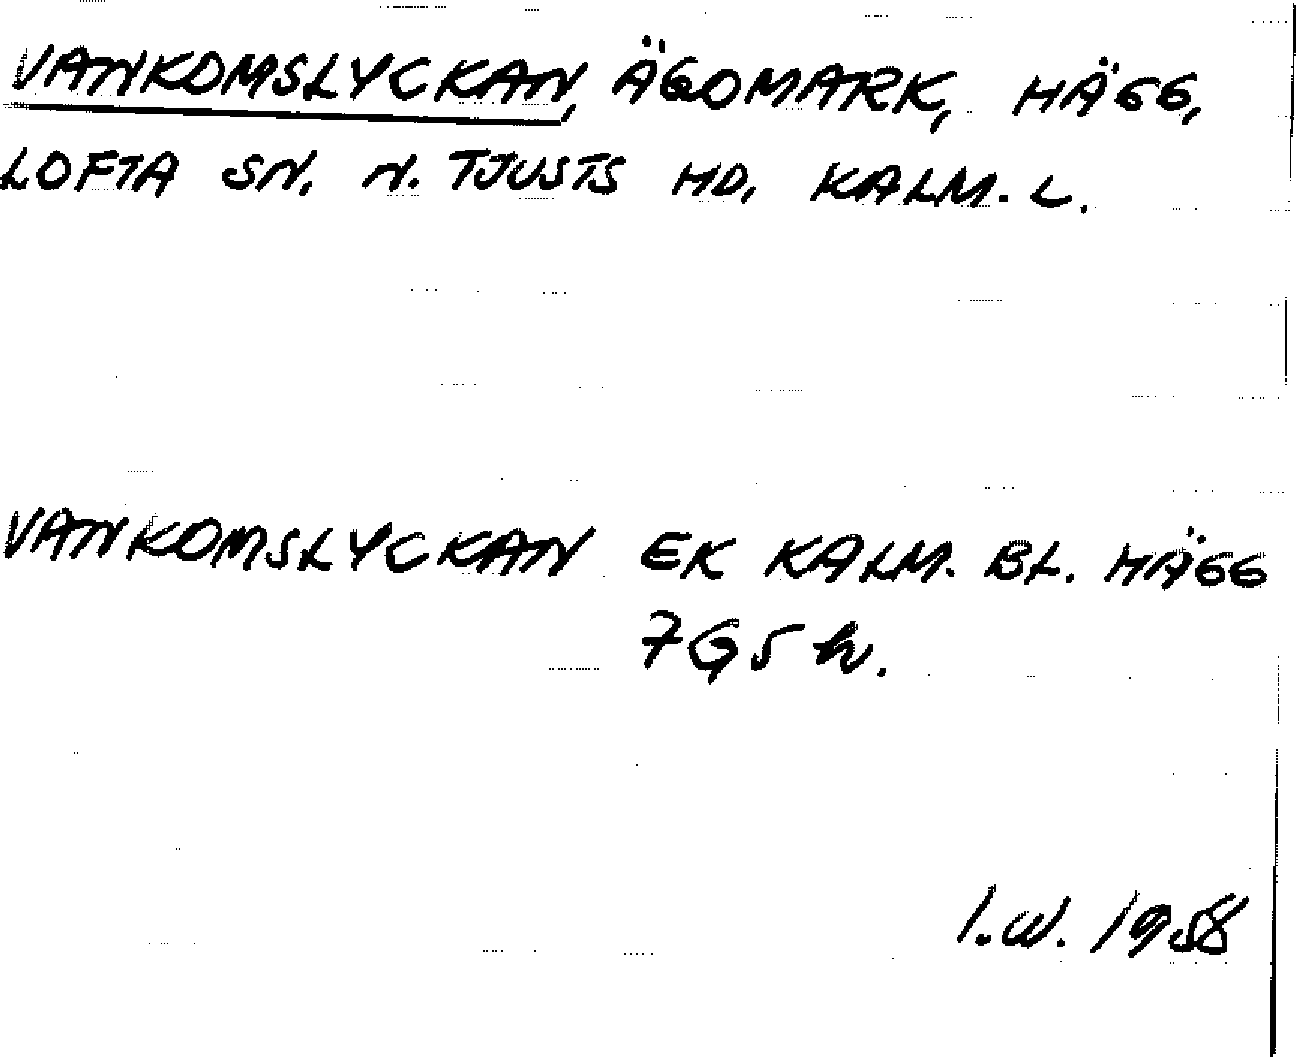 VANKOMSLYCKAN, ÄGOMARK, HÄGG,
LOFTA SN. N. TJUSTS HD, KALM. L.
VANKOMSLYCKAN EK KALM. BL. HÄGG
7G5h.
I.W. 1958